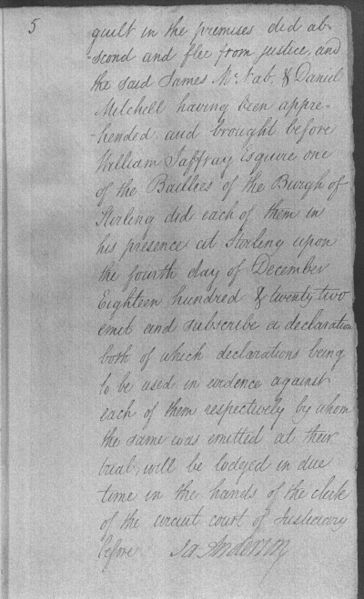 5
guilt in the premises did ab-
scond and flee from justice, and
the said James McNab & Daniel
Mitchell having been appre-
-hended and brought before
William Jaffray Esquire one
of the Baillies of the Burgh of
Stirling did each of them in
his presence at Stirling upon
the fourth day of December
Eighteen hundred & twenty two
emit and subscribe a declaration
both of which declarations being
to be used in evidence against
each of them respectively by whom
the same was emitted at their
trial, will be lodged in due
time in the hands of the clerk
of the circuit court of Justiciary
before Ja Anderson